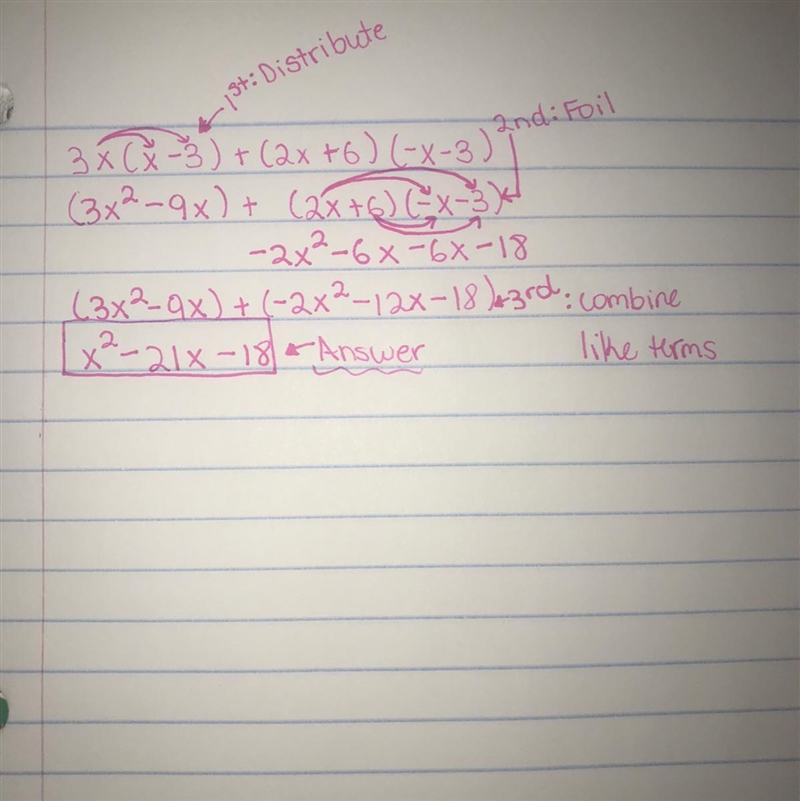 1st: Distribute
3x(x-3) + (2x+6)(-x-3)
2nd: Foil
(3x²-9x) + (2x+6)(-x-3)
-2x²-6x-6x-18
(3x²-9x) + (-2x²-12x-18) 3rd: combine
x²-21x-18 Answer like terms